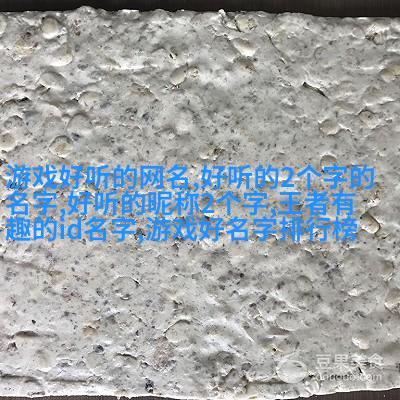 游戏好听的网名,好听的2个字的
名字,好听的昵称2个字,王者有
趣的id名字,游戏好名字排行榜
豆果美食